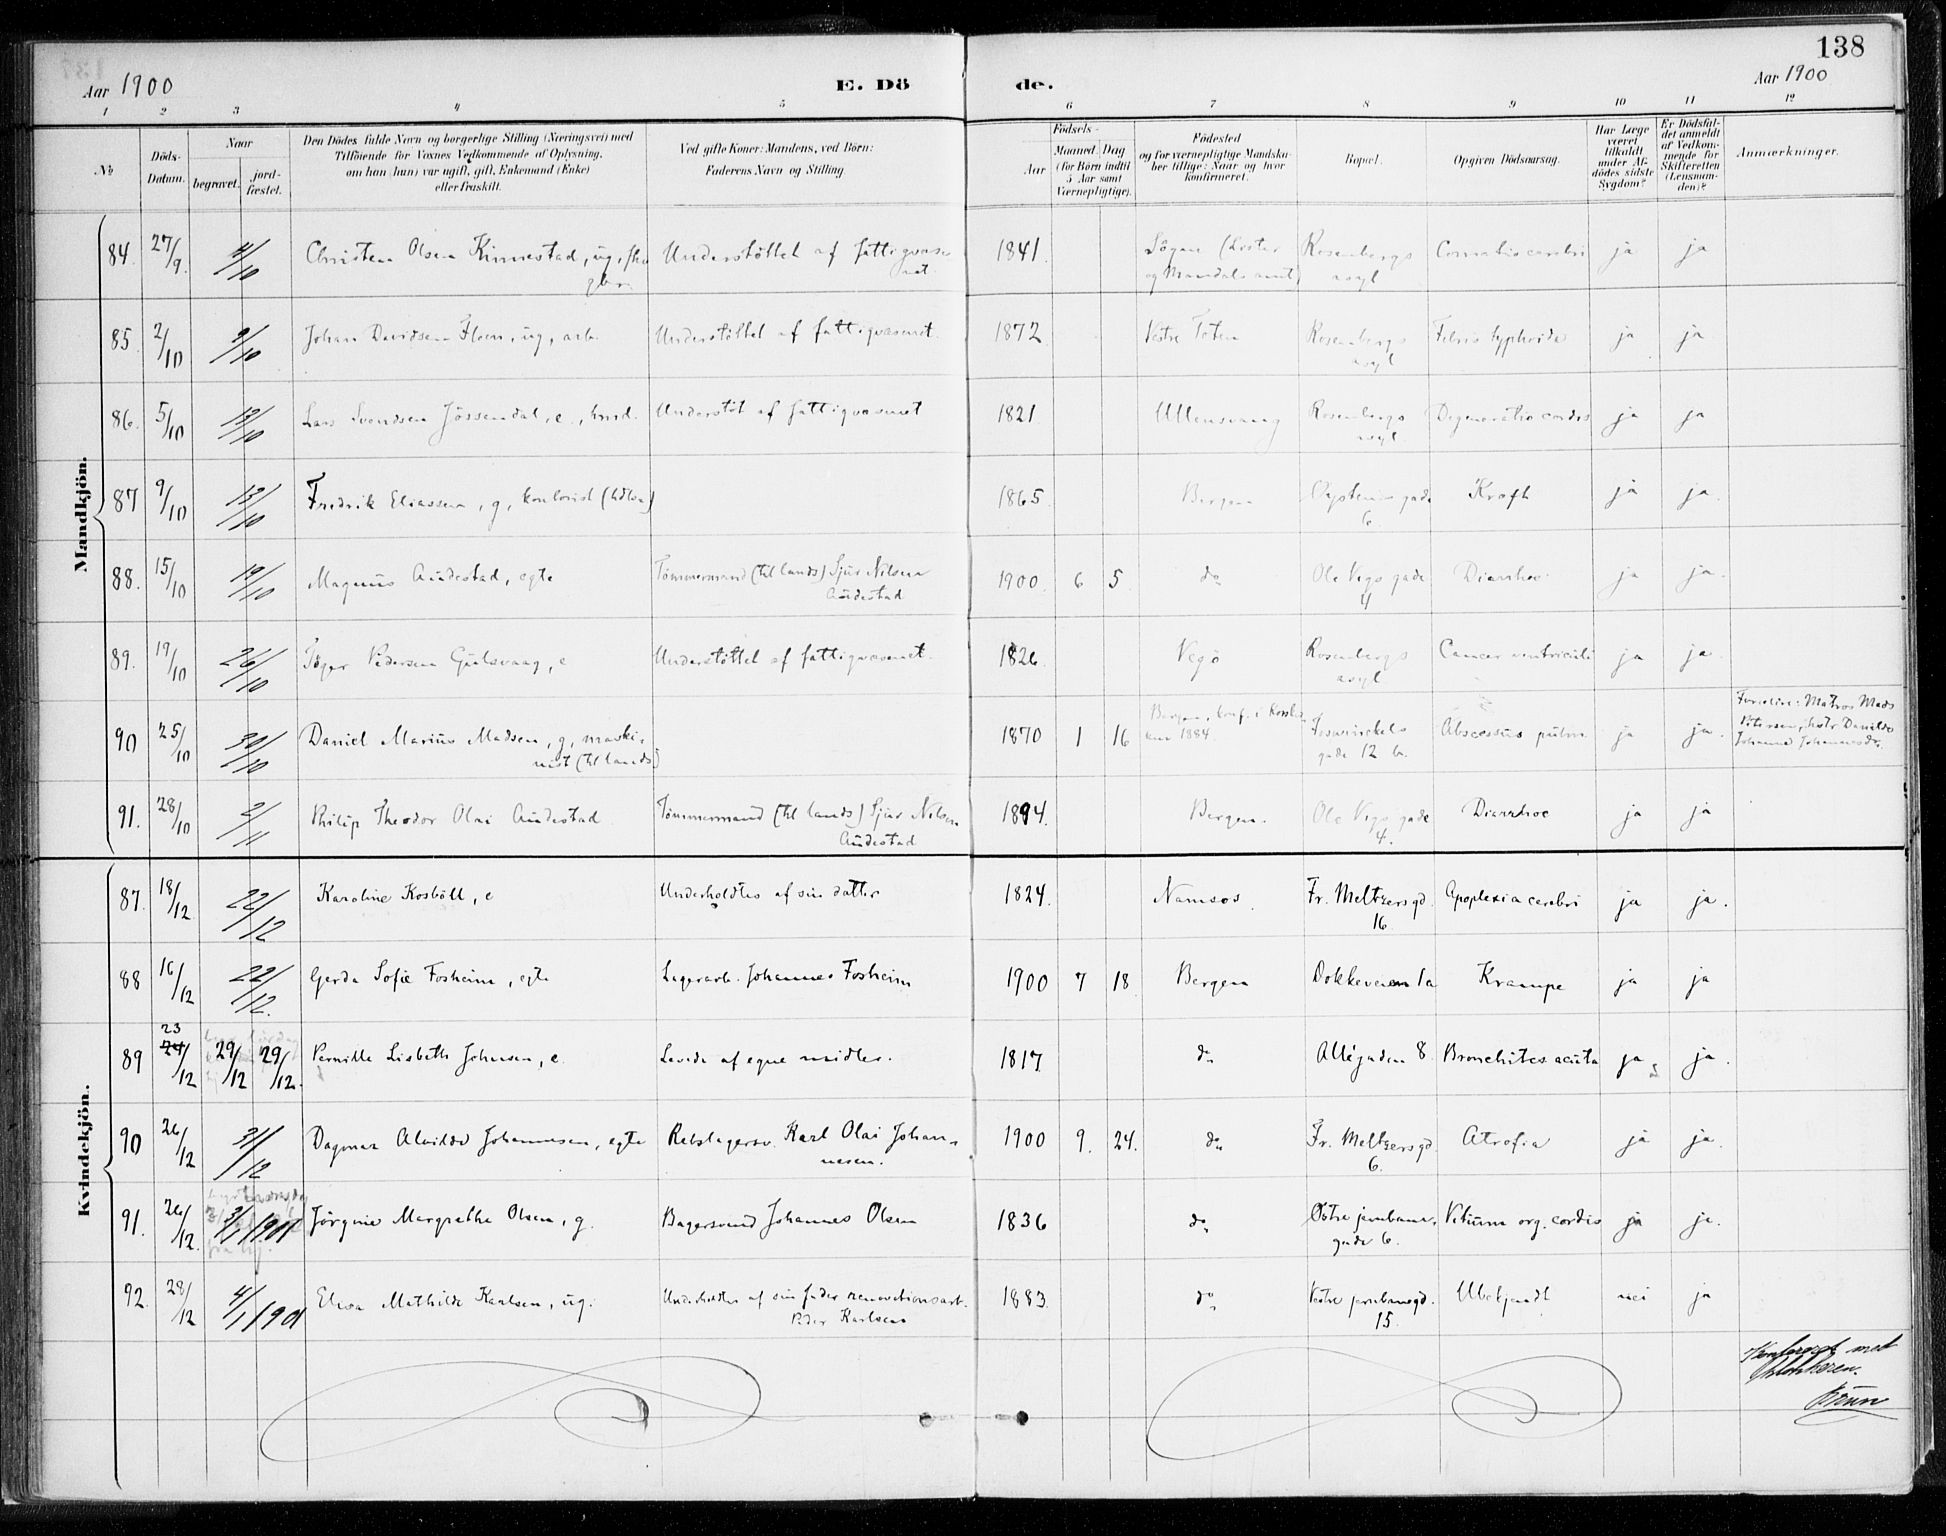 138
Aar 1900
E. Dö
de.
Aar 1900
1 2 3 4 5 6 7 8 9 10 11 12
№
Döds-Datum.
Naar
begravet.
jord-fæstet.
Den Dödes fulde Navn og borgerlige Stilling (Næringsvei) med
Tilföiende for Voxnes Vedkommende af Oplysning,
om han (hun) var ugift, gift, Enkemand (Enke)
eller fraskilt.
Ved gifte Koner: Mandens, ved Börn:
Faderens Navn og Stilling.
Födsels-
Aar
Maaned. Dag
(for Börn indtil
5 Aar samt
Værnepligtige).
Födested
og for værnepligtige Mandska-
ber tillige: Naar og hvor
konfirmeret.
Bopæl.
Opgiven Dödsaarsag.
Har Læge
været
tilkaldt
under Af-
dödes sidste
Sygdom?
Er Dödsfal-
det anmeldt
af Vedkom-
mende for
Skifteretten
(Lensman-
den)?
Anmærkninger.
Mandkjön.
84. 27/9. 4/10 Christen Olsen Kinnestad, ug, Understöttet af fattigvæse-
net 1841. Sögne (Lister
og Mandals amt) Rosenbergs
asyl cerebri ja ja
85. 2/10 9/10 Johan Davidsen, ug, arb. Understöttet af fattigvæsenet. 1872 Vestre Toten Rosenbergs
asyl Febris typhoida ja ja
86. 5/10 12/10 Lars Svendsen Jössendal, e., Understöt af fattigvæsenet 1821 Ullensvang Rosenbergs
asyl. Degeneratio cordis ja ja
87 9/10 13/10 Fredrik Eliassen, g, kontorist 1865 Bergen gade
6. Kræft ja ja.
88. 15/10 19/10 Magnus Audestad, egte Tömmermand (til lands) Sjur Nilsen
Audestad 1900. 6 5 do Ole Vigs gade
4 Diarrhoe ja ja.
89. 19/10 26/10 Pedersen e Understöttet af fattigvæsenet. 1826 Vegö Rosenbergs
asyl Cancer ventriculi ja ja.
90 25/10 30/10 Daniel Marius Madsen, g, maski-
nist (til lands) 1870 1 16 Bergen, konf. i
1884. gade 12 b. Abscessus pulm. ja ja. Forældre: Matros Mads
Petersen, hstr. Danilde
Johanne Johannesdr.
91. 28/10 2/11 Philip Theodor Olai Audestad Tömmermand (til lands) Sjur Nilsen
Audestad 1894. Bergen. Ole Vigs gade
4. Diarrhoe ja ja
Kvindekjön.
87. 18/12 22/12 Karoline Kosböll, e Underholdtes af sin datter 1824. Namsos. Fr. Meltzersgd.
16 Apoplexia cerebri ja ja.
88 16/12 22/12. Gerda Sofie Fosheim, egte Lagerarb. Johannes Fosheim 1900 7 18. Bergen Dokkeveien 1a Krampe ja ja
89 23/12 29/12 29/12. Pernille Lisbeth Johnsen, e. Levede af egne midler. 1817 do Allégaden 8. Bronchites acuta ja ja.
90 26/12 31/12 Dagmar Alvilde Johannesen, egte Rebslagersv. Karl Olai Johan-
nesen. 1900 9. 24. do Fr. Meltzersgd.
6. Atrofia ja ja.
91. 26/12. 3/1 1901 Jörgine Margrethe Olsen, g. Bagersvend Johannes Olsen 1836 do Östre jernbane-
gade 6. Vitium org. cordis ja ja.
92. 28/12 4/1 1901 Elisa Mathilde Karlsen, ug. Underholdtes af sin fader renovationsarb.
Peder Karlsen 1883. do Vestre jernbanegd.
15. Ubekjendt nei ja
med